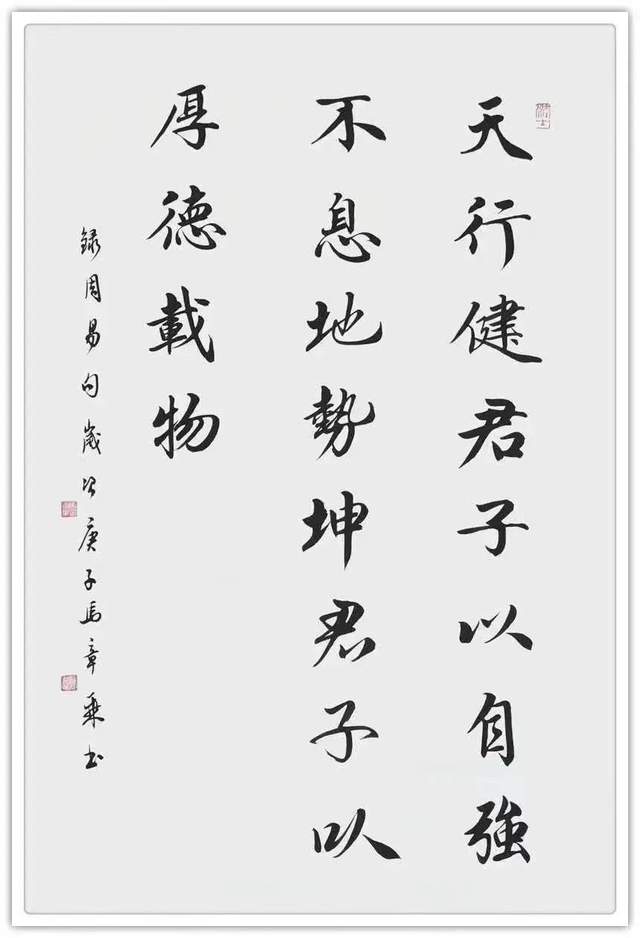 天行健君子以自強
不息地勢坤君子以
厚德載物
錄周易句歲次庚子馬章乘書